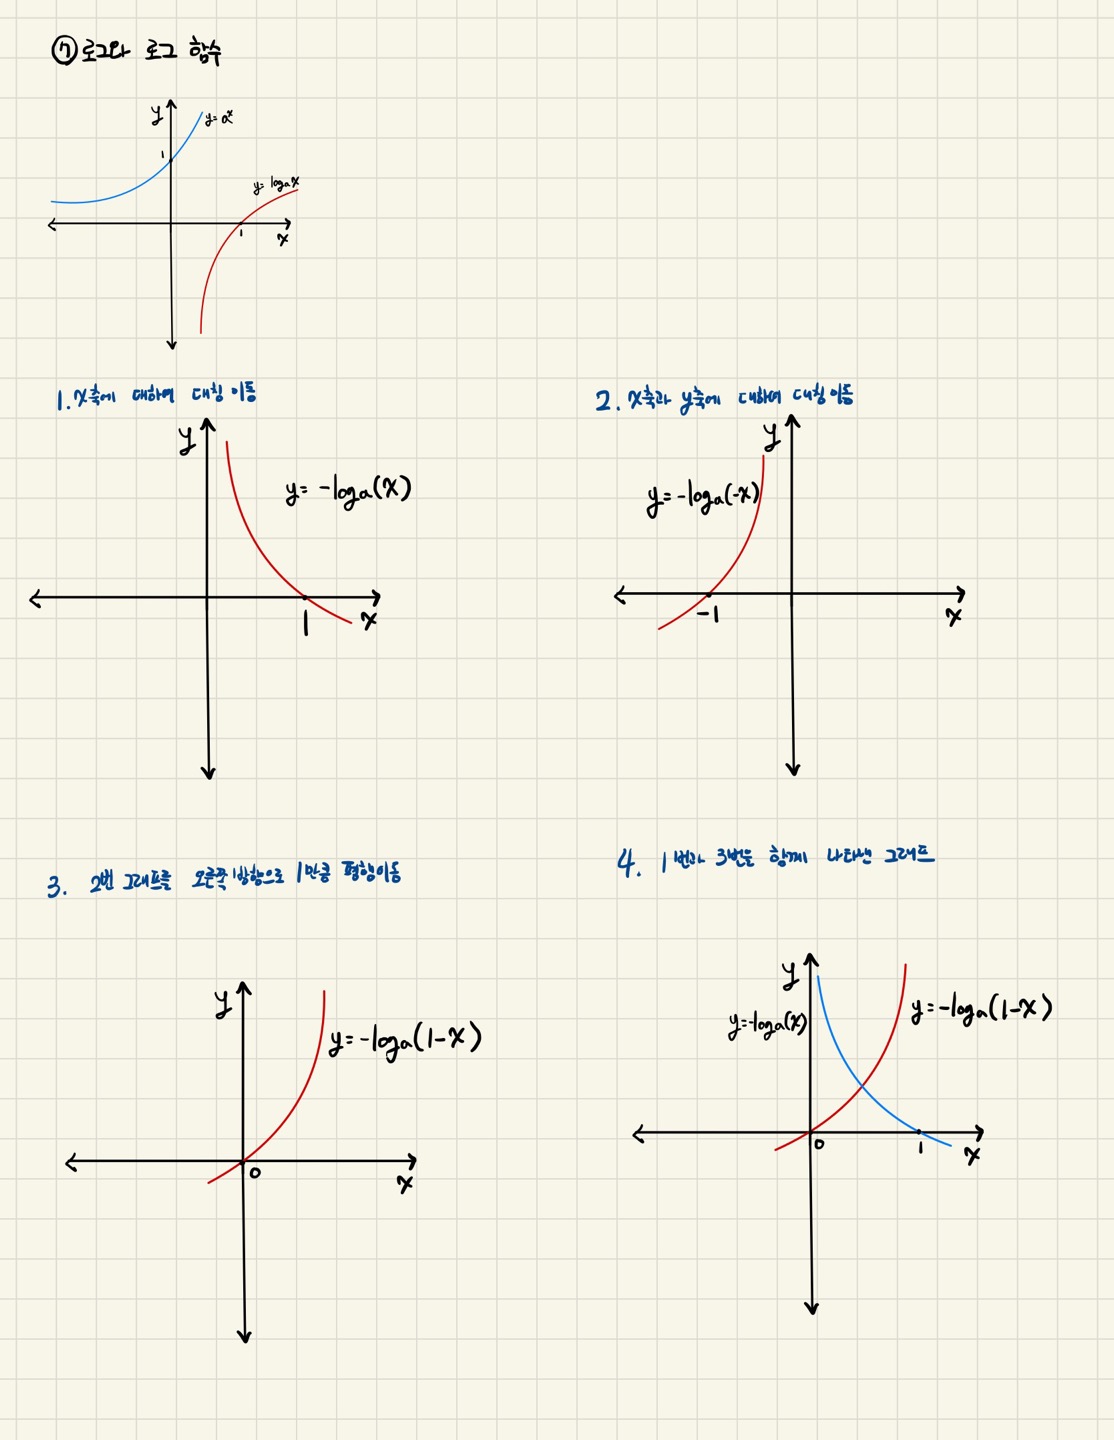 ⑦ 로그와 로그 함수
y
y=aˣ
1
y=logₐx
1
x
1. x축에 대하여 대칭 이동
y
y=-logₐ(x)
1
x
2. x축과 y축에 대하여 대칭 이동
y
y=-logₐ(-x)
-1
x
3. 2번 그래프를 오른쪽 방향으로 1만큼 평행이동
y
y=-logₐ(1-x)
0
x
4. 1번과 3번을 함께 나타낸 그래프
y
y=-logₐ(x)
y=-logₐ(1-x)
0
1
x